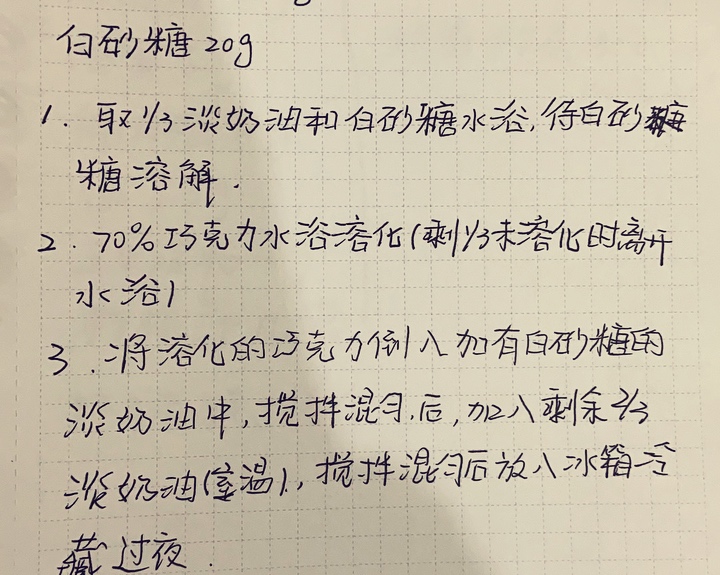 白砂糖 20g
1. 取1/3淡奶油和白砂糖水浴,待白砂
糖溶解.
2. 70%巧克力水浴溶化(剩1/3未溶化时离开
水浴)
3. 将溶化的巧克力倒入加有白砂糖的
淡奶油中,搅拌混匀.后,加入剩余2/3
淡奶油(室温).,搅拌混匀后放入冰箱冷
藏过夜.